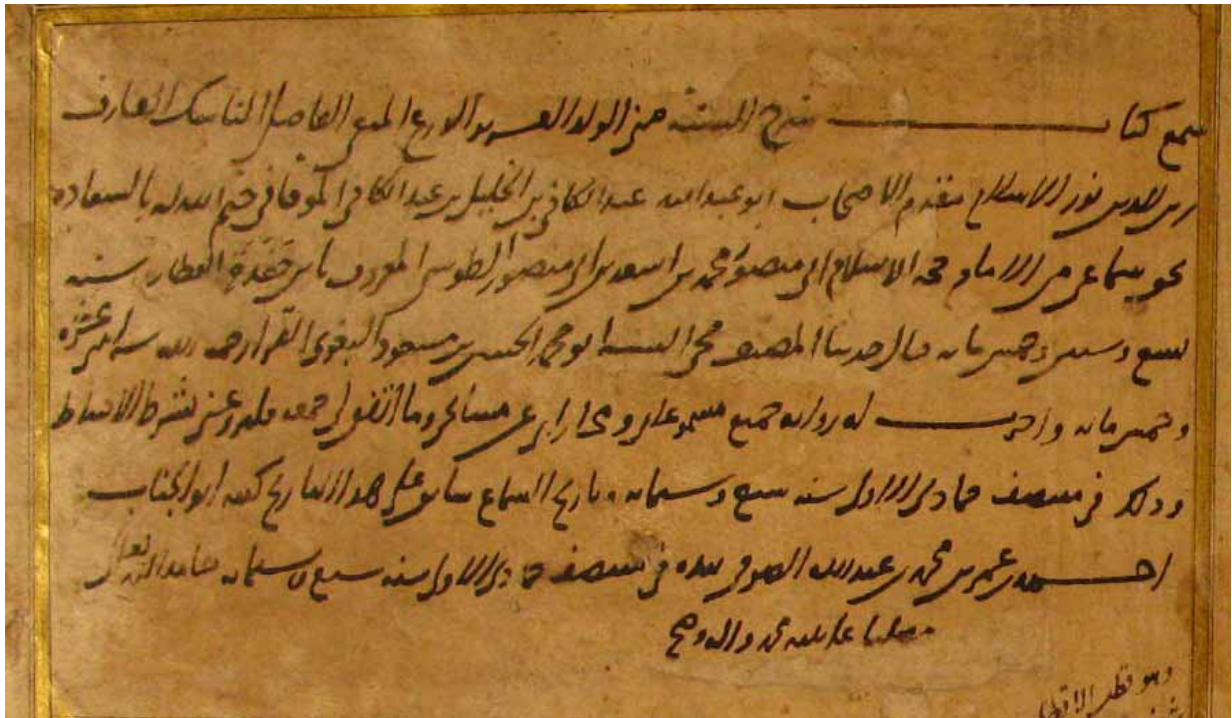 سمع كتاب شرح السنة مني الولد العزيز الورع المتقي الفاضل الناسك العارف
زين الدين نور الإسلام مقدم الأصحاب ابو عبد الله عبد الكافي بن الخليل بن عبد الكافي ختم الله له بالسعادة
بحق سماعي من الإمام الإسلام ابي منصور محمد بن اسعد بن ابي منصور الطوسي المعروف بابن حفدة العطار سنة
سبع وستين وخمس مائة قال حدثنا المصنف محي السنة ابو محمد الحسين بن مسعود البغوي الفرا رحمه الله سنة اثني عشرة
وخمس مائة واجزت له رواية جميع مسموعاتي من مشايخي وما اتفق لي جمعه فليرو عني بشرط الاحتياط
وذلك في منتصف جمادى الاولى سنة سبع وستمائة وتاريخ السماع سابق على هذا التاريخ كتبه ابو الجناب
احمد بن عمر بن محمد بن عبد الله الصوفي بيده في منتصف جمادى الاولى سنة سبع وستمائة حامدا لله تعالى
مصليا على نبيه محمد واله
وهو قطب